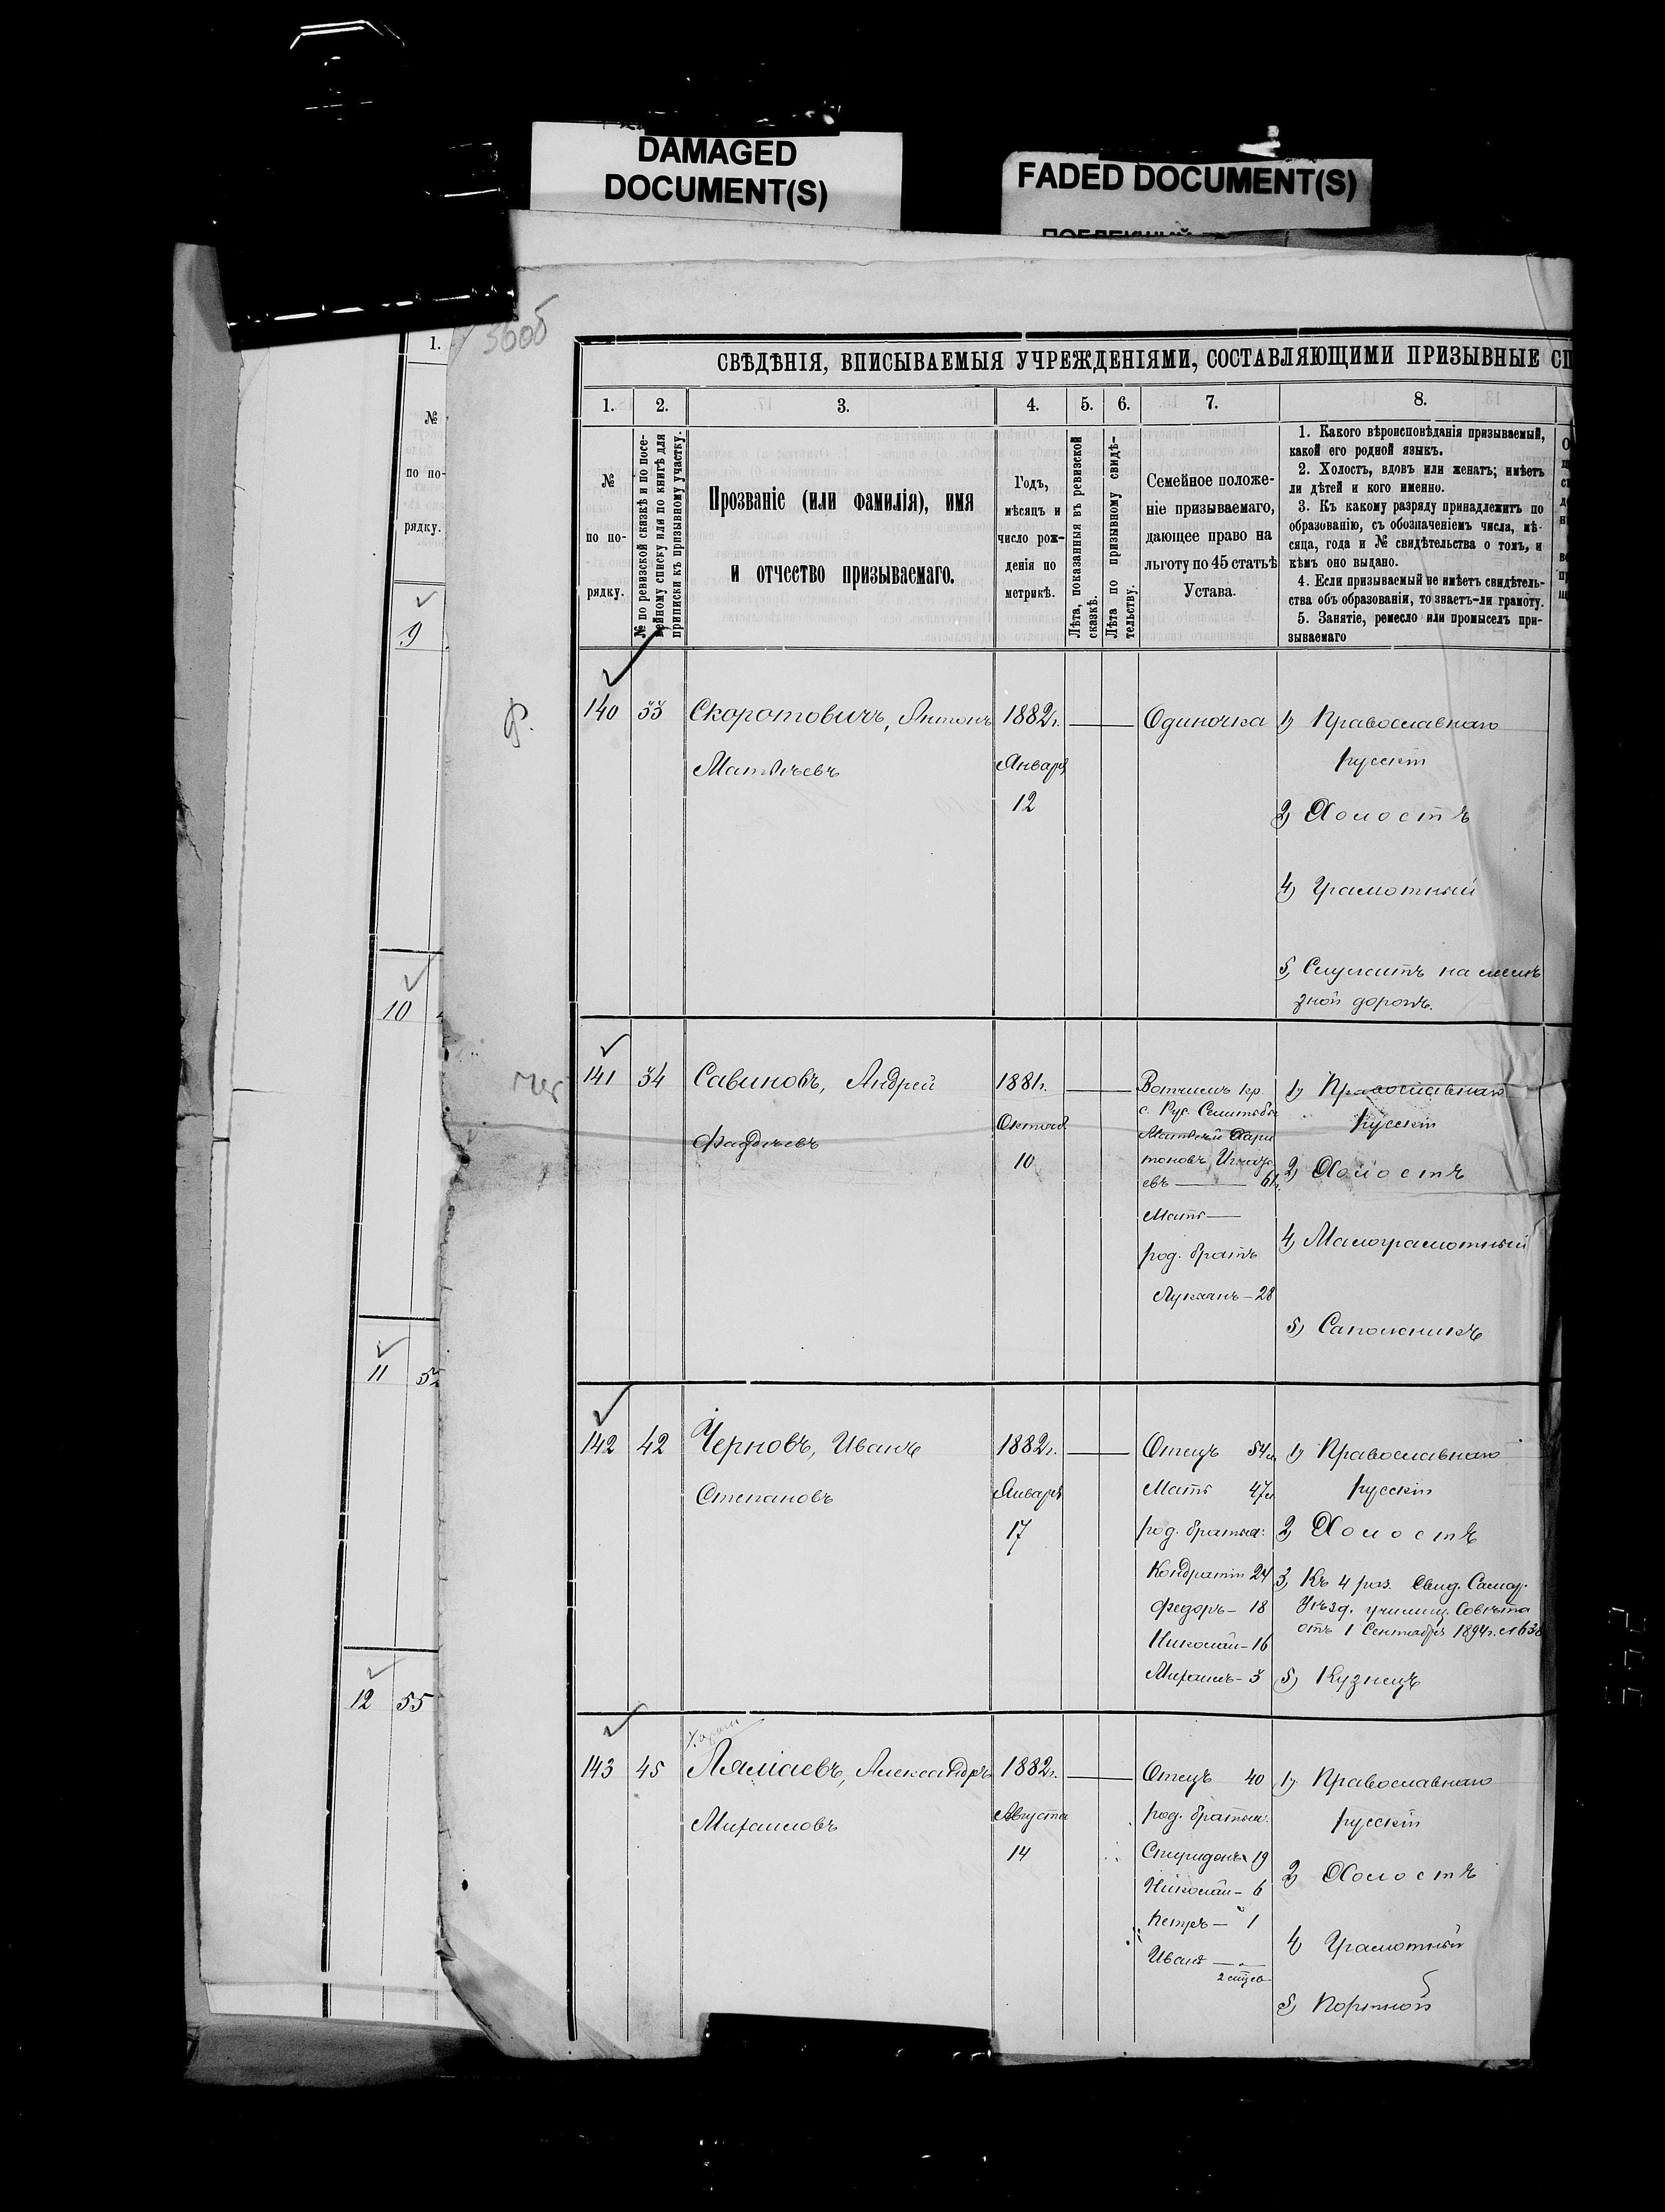 DAMAGED
DOCUMENT(S)
FADED DOCUMENT(S)
36об
1.
№
по по-
рядку.
9
10
11 52
12 55
СВѢДѢНІЯ, ВПИСЫВАЕМЫЯ УЧРЕЖДЕНІЯМИ, СОСТАВЛЯЮЩИМИ ПРИЗЫВНЫЕ СП
1. 2. 3. 4. 5. 6. 7. 8.
№
по по-
рядку.
№ по ревизской сказкѣ и по посе-
мейному списку или по книгѣ для
приписки къ призывному участку.
Прозваніе (или фамилія), имя
и отчество призываемаго.
Годъ,
мѣсяцъ и
число рож-
денія по
метрикѣ.
Лѣта, показанныя въ ревизской
сказкѣ.
Лѣта по призывному свидѣ-
тельству.
Семейное положе-
ніе призываемаго,
дающее право на
льготу по 45 статьѣ
Устава.
1. Какого вѣроисповѣданія призываемый,
какой его родной языкъ.
2. Холостъ, вдовъ или женатъ; имѣетъ
ли дѣтей и кого именно.
3. Къ какому разряду принадлежитъ по
образованію, съ обозначеніемъ числа, мѣ-
сяца, года и № свидѣтельства о томъ, и
кѣмъ оно выдано.
4. Если призываемый не имѣетъ свидѣтель-
ства объ образованіи, то знаетъ-ли грамоту.
5. Занятіе, ремесло или промыселъ при-
зываемаго
ф.
140 33 Скоротовичъ, Антонъ
Матвѣевъ
1882г.
Января
12
Одиночка
1) Православнаго
русскій
2) Холостъ
4) Грамотный
5) Служитъ на желѣ
зной дорогѣ.
141 34 Савиновъ, Андрей
Фадѣевъ
1881г.
Октяб.
10
Вотчимъ кр.
с. Рус.
Матвѣй Хари
тоновъ, Игнать
евъ — 61г.
Мать —
род. братъ
Лукіанъ – 28
1) Православнаго
русскій
2) Холостъ
4) Малограмотный
5) Сапожникъ
142 42 Черновъ, Иванъ
Степановъ
1882г.
Января
17
Отецъ 54л
Мать 47л
род. братья:
Кондратій 24
Федоръ – 18
Николай – 16
Михаилъ – 3
1) Православнаго
русскій
2) Холостъ
3) Къ 4 раз. Свид. Самар.
Уѣзд. училищ. Совѣта
отъ 1 Сентября 1894г. №638
5) Кузнецъ
143 45 Лямаевъ, Александръ
Михаиловъ
1882г.
Августа
14
Отецъ 40
род. братья:
Спиридонъ 19
Николай – 6
Петръ – 1
Иванъ —
1) Православнаго
русскій
2) Холостъ
4) Грамотный
5) Портной